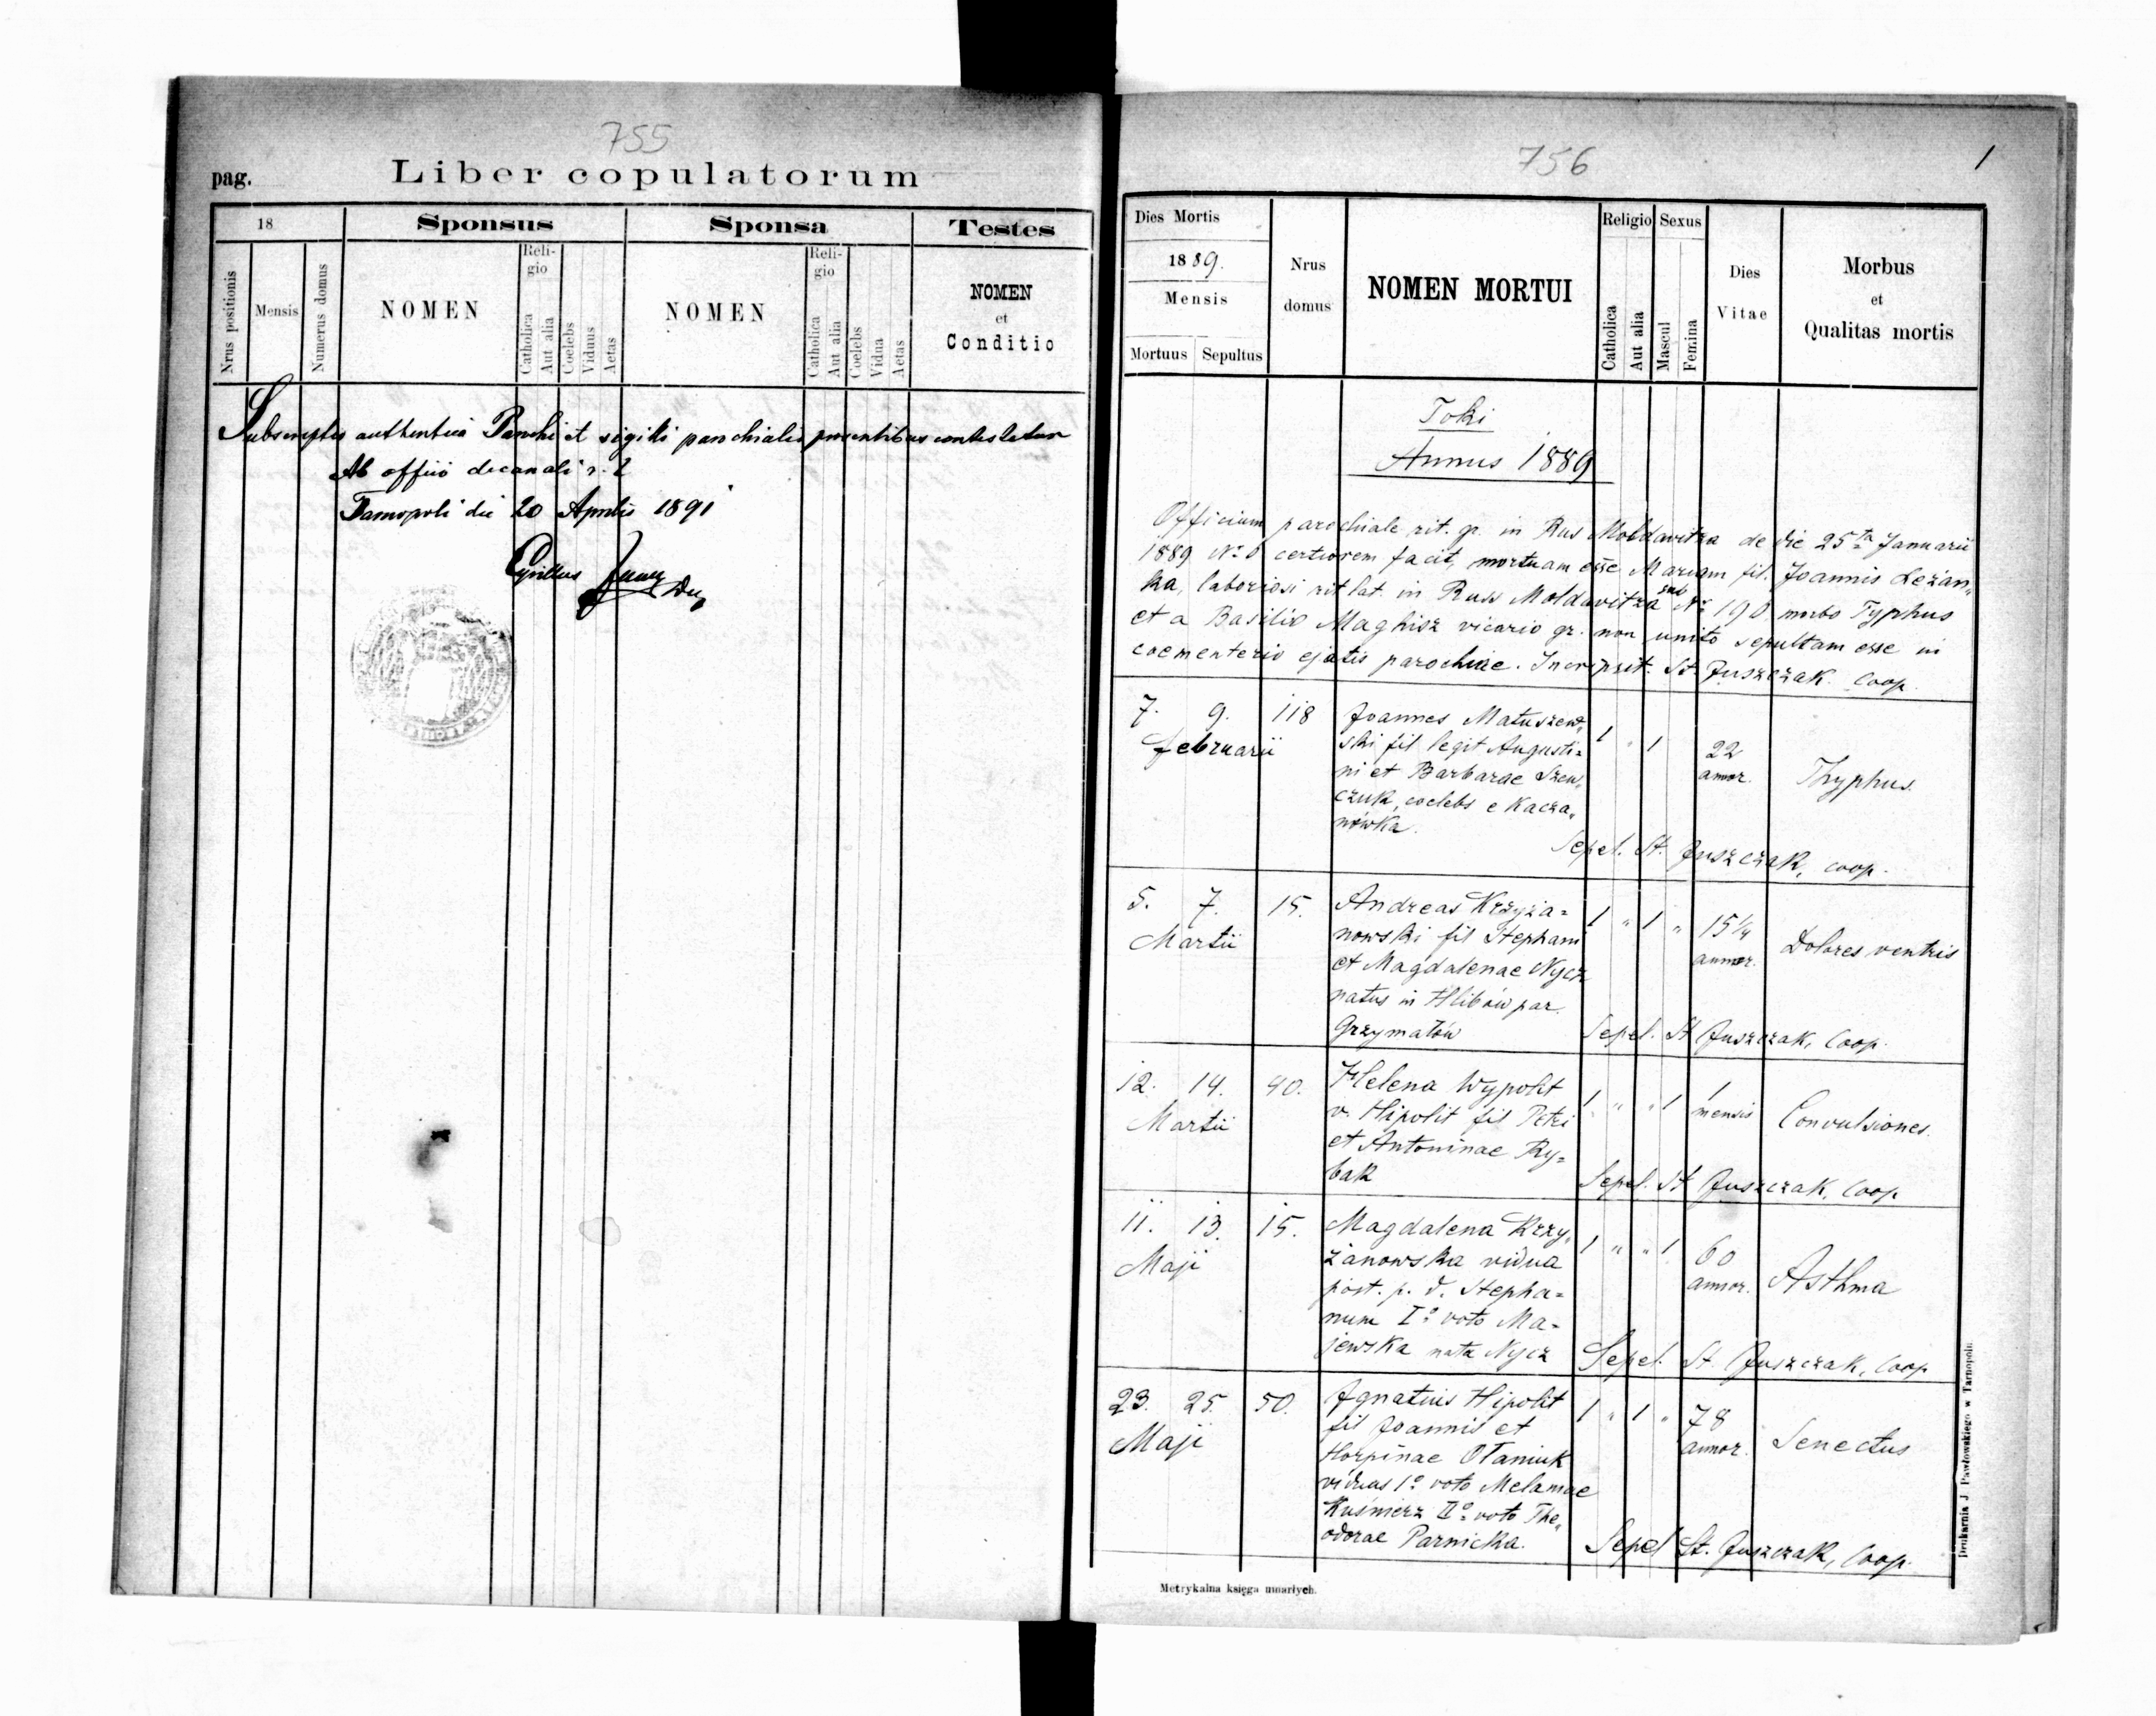 755
pag.
Liber copulatorum
18
Sponsus
Sponsa
Testes
Nrus positionis
Mensis
Numerus domus
NOMEN
Reli-
gio
Catholica
Aut alia
Coelebs
Viduus
Aetas
NOMEN
Reli-
gio
Catholica
Aut alia
Coelebs
Vidua
Aetas
NOMEN
et
Conditio
authentica Parochi et sigilli parochialis praesentibus contestatur
Ab officio decanali r. l
Tarnopoli die 20 Aprilis 1891
Cyrillus
756
1
Dies Mortis
1889.
Mensis
Mortuus
Sepultus
Nrus
domus
NOMEN MORTUI
Religio
Catholica
Aut alia
Sexus
Mascul
Femina
Dies
Vitae
Morbus
et
Qualitas mortis
Toki
Annus 1889
Officium parochiale rit. gr. in Rus Moldavitza de die 25ta Januarii
1889 No 6 certiorem facit, mortuam esse Mariam fil. Joannis Leżan„
ka, laboriosi rit lat. in Russ Moldavitza sub Nr 190 morbo Typhus
et a Basilio Maghisz vicario gr. non unito sepultam esse in
coementerio ejatis parochiae. Inscripsit. St. Juszczak Coop.
7. 9. 118 Joannes Matuszew„ 1 " 1 22 Thyphus.
Februarii ski fil legit Augusti= annor.
ni et Barbarae Szew„
czuk, coelebs e Kacza„
nówka.
Sepel. St. Juszczak, coop.
5. 7. 15. Andreas Krzyża= 1 " 1 " 15 1/4 Dolores ventris
Martii nowski fil Stephani annor.
et Magdalenae Nycz
natus in Hlibów par.
Grzymałów Sepel. St Juszczak, Coop.
12. 14. 40. Helena Wypolit 1 " " 1 1 Convulsiones.
Martii v. Hipolit fil Petri mensis
et Antoninae Ry=
bak Sepel. St Juszczak, Coop
11. 13. 15. Magdalena Krzy„ 1 " " 1 60 Asthma
Maji żanowska vidua annor.
post. p. d. Stepha=
num Io voto Ma-
jewska nata Nycz Sepel. St. Juszczak, Coop
23. 25. 50. Ignatius Hipolit 1 " 1 " 78 Senectus
Maji fil Joannis et annor.
Horpinae Ołaniuk
viduus 1o voto Melaniae
Kuśnierz IIo voto The„
odorae Parnicka. Sepel St. Juszczak, Coop.
Metrykalna księga umarłych.
Drukarnia J. Pawłowskiego w Tarnopolu